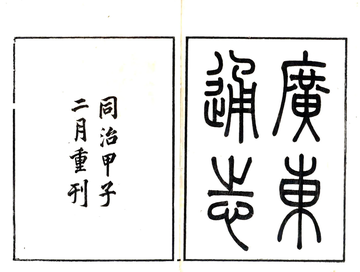 廣東
通志
同治甲子
二月重刊